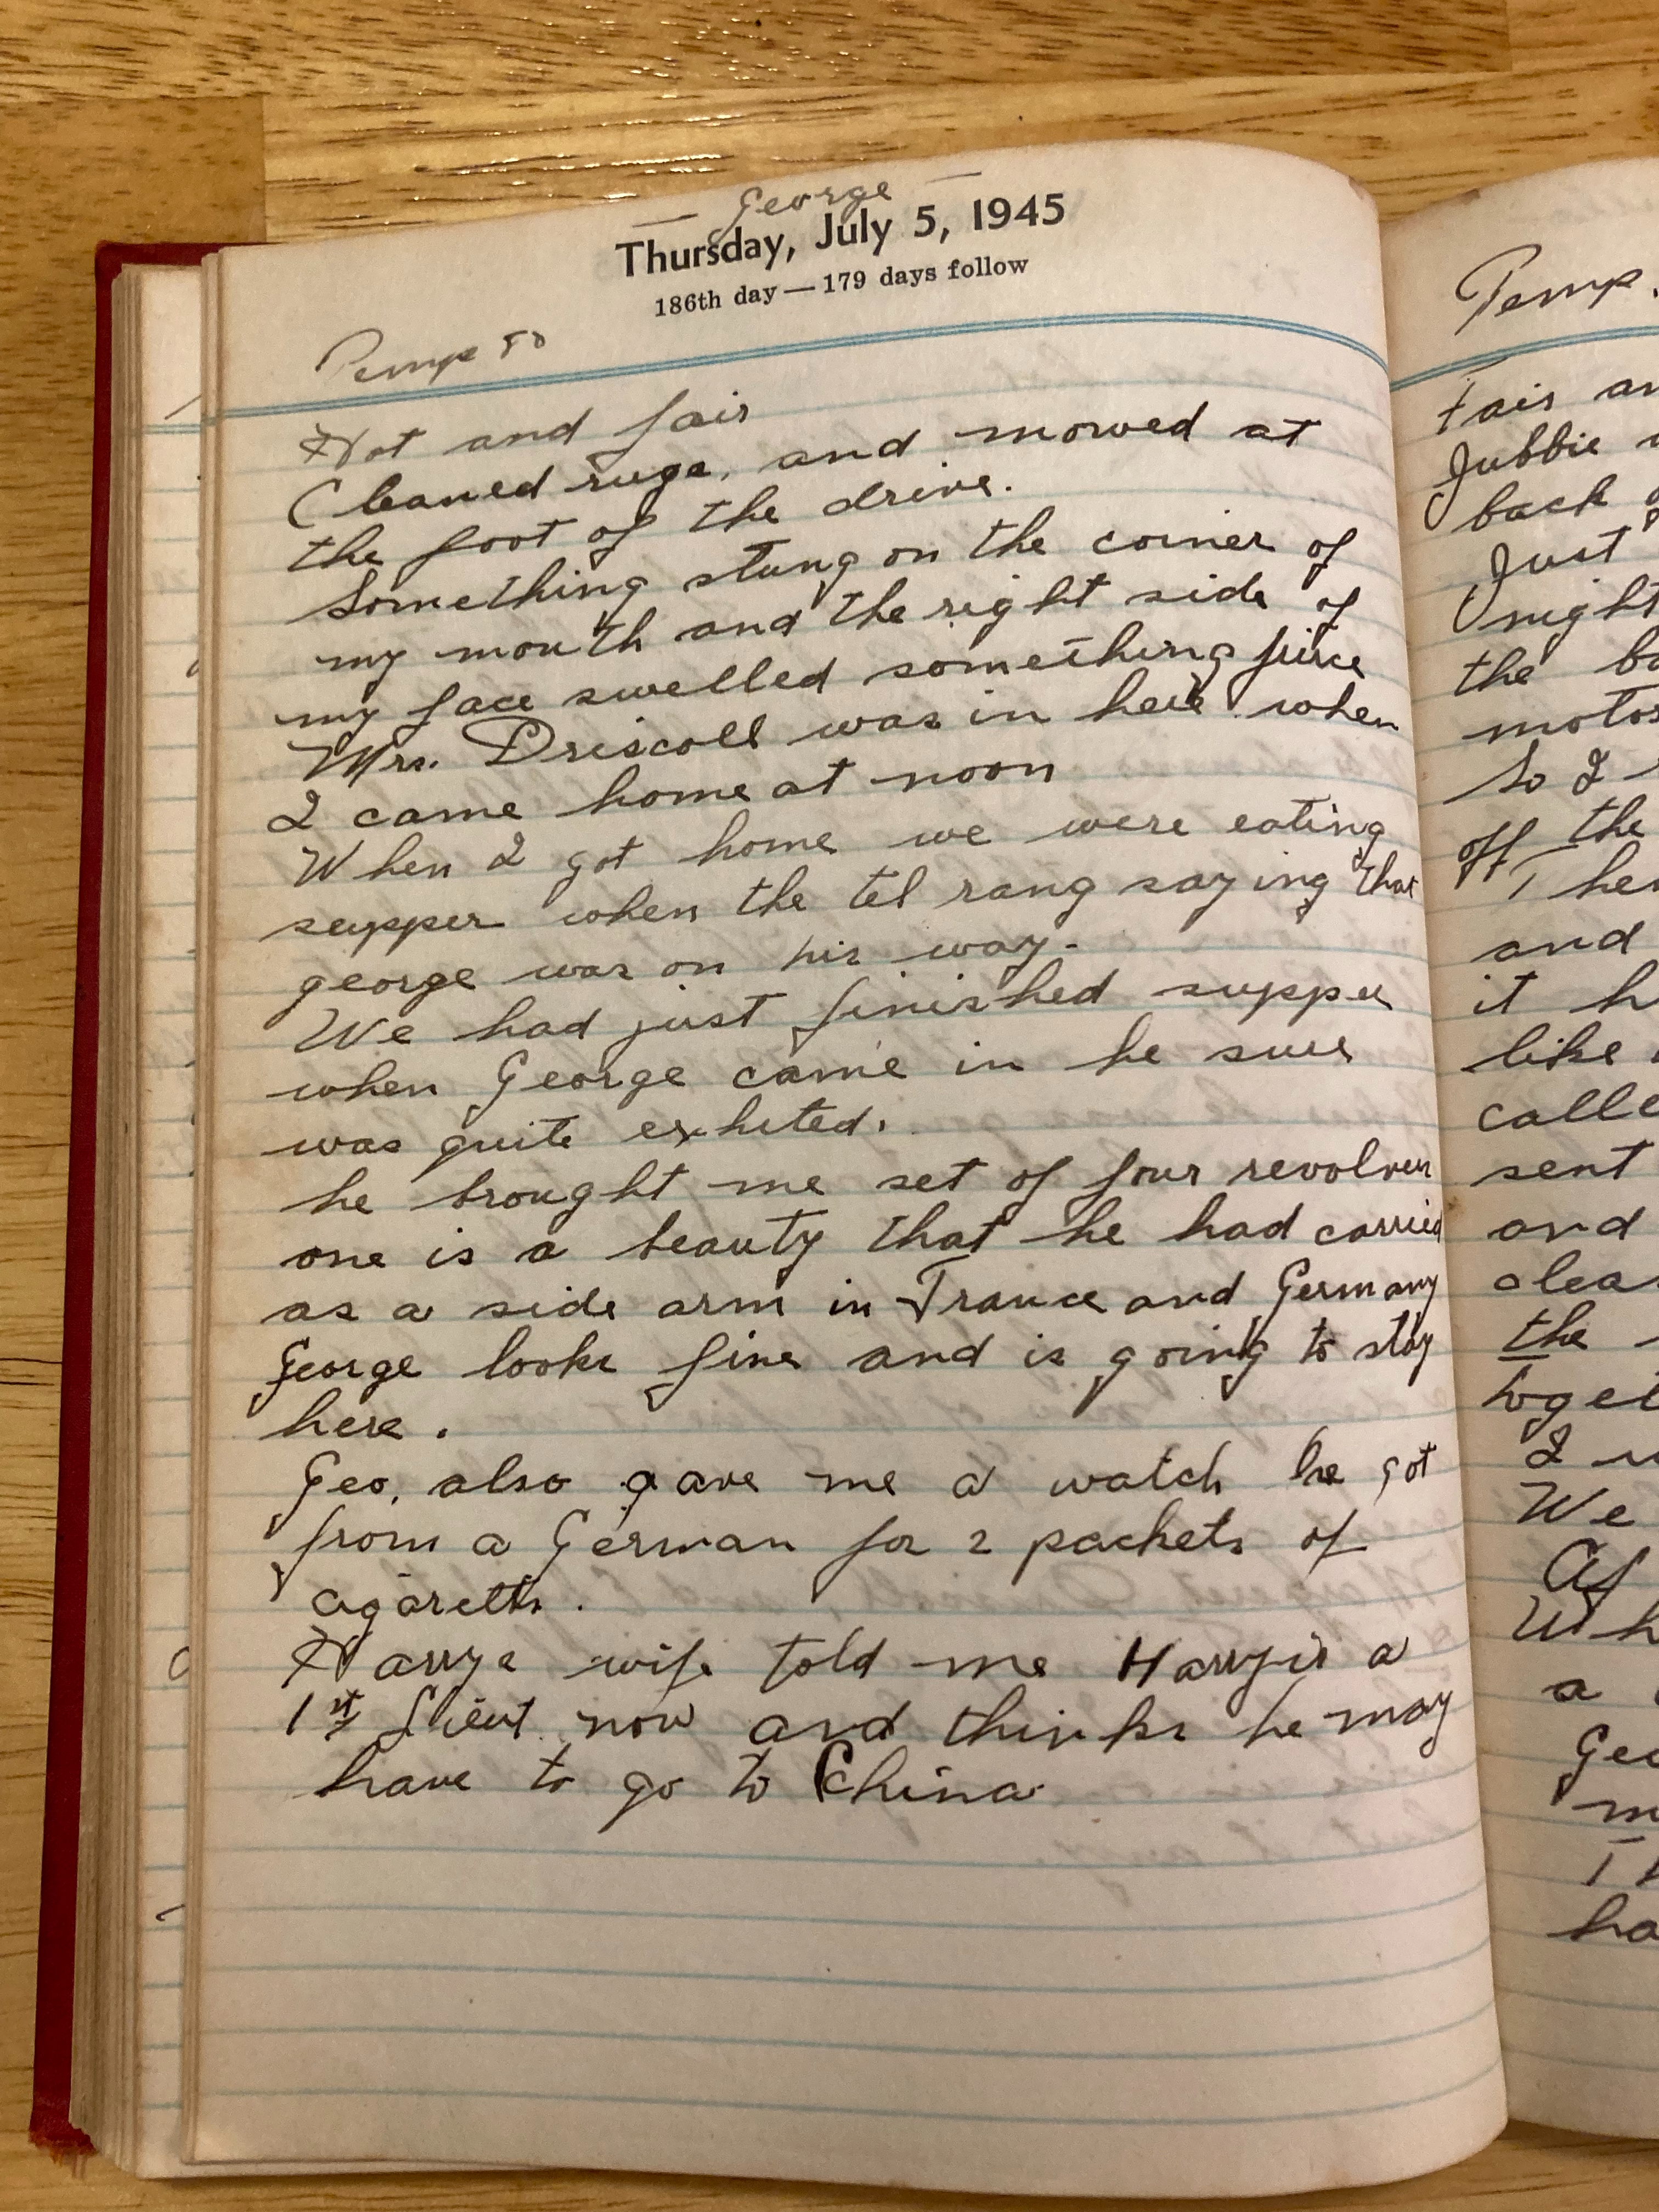 — George —
Thursday, July 5, 1945
186th day — 179 days follow
Temp 80
Hot and fair
Cleaned rugs, and mowed at
the foot of the drive.
Something stung on the corner of
my mouth and the right side of
my face swelled something fierce
Mrs. Driscoll was in here when
I came home at noon
When I got home we were eating
supper when the tel rang saying that
george was on his way.
We had just finished supper
when George came in he sure
was quite exhited.
he brought me set of four revolvers
one is a beauty that he had carried
as a side arm in France and Germany
George looks fine and is going to stay
here.
Geo. also gave me a watch he got
from a German for 2 packets of
cigaretts.
Harrys wife told me Harry is a
1st Lieut now and thinks he may
have to go to China
Temp.
Fair
Jubbie
back
Just
night
the
motor
So I
off the
and
it
like
calle
sent
and
clea
the
toget
I
We
Af
Wh
a
Geo
m
Th
ha